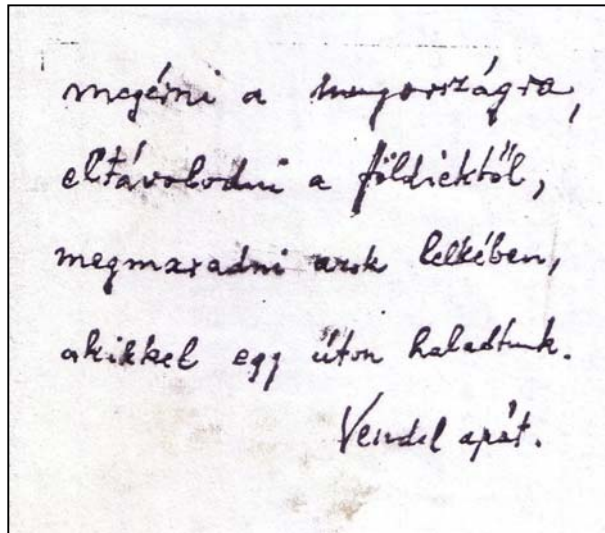 megérni a mennyországra,
eltávolodni a földiektől,
megmaradni azok lelkében,
akikkel egy úton haladtunk.
Vendel apát.